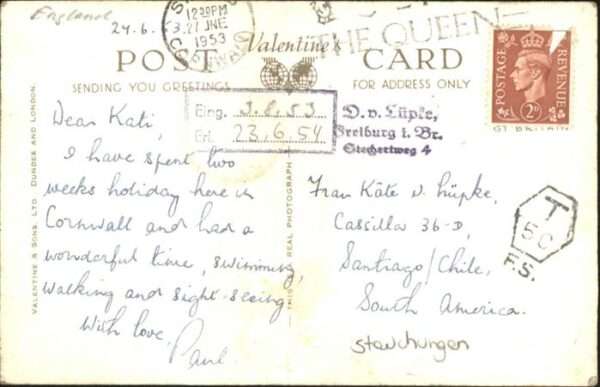 England
24.6.53.
12:30PM
27 JNE
1953
CORNWALL
THE QUEEN
POST Valentine's CARD
SENDING YOU GREETINGS FOR ADDRESS ONLY
POSTAGE REVENUE
2D
GT BRITAIN
Eing. 3.8.53
Erl. 23.6.54
D.v. Lüpke,
Freiburg i. Br.
Stechertweg 4
Dear Kati,
I have spent two
weeks holiday here in
Cornwall and had a
wonderful time, swimming,
walking and sight-seeing.
With love,
Paul.
Frau Käte v. Lüpke,
Cassilla 36-D,
Santiago/Chile,
South America.
T
50
F.S.
VALENTINE & SONS, LTD. DUNDEE AND LONDON.
THIS IS A REAL PHOTOGRAPH